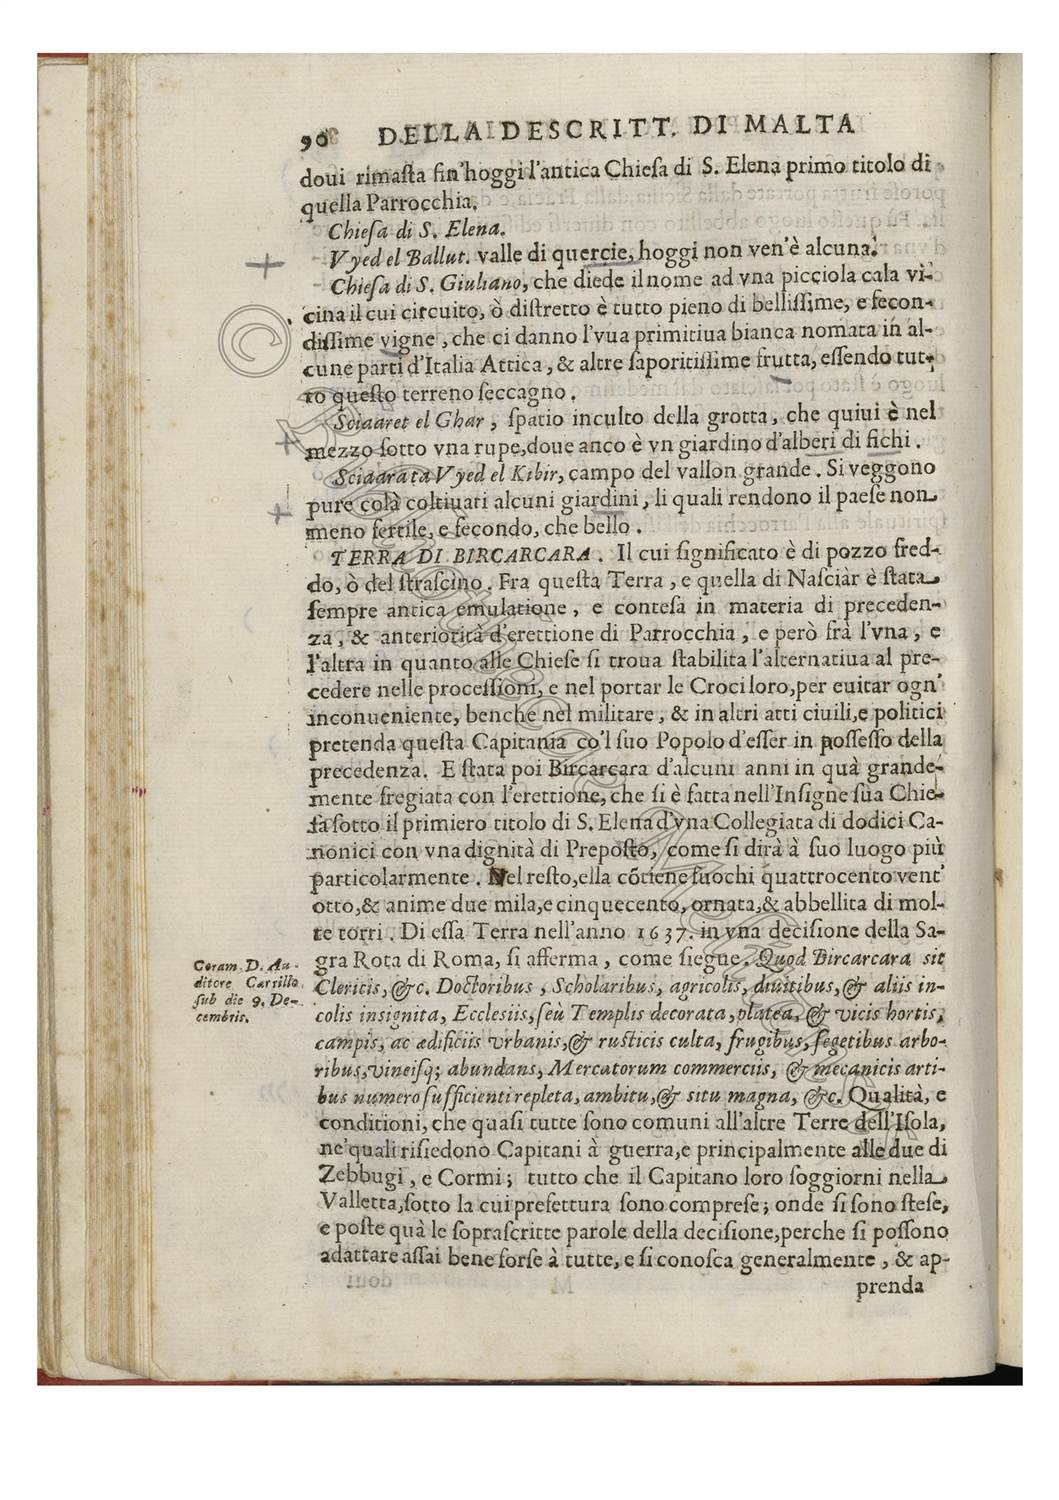 90 DELLA DESCRITT. DI MALTA
doui rimaſta ſin'hoggi l'antica Chieſa di S. Elena primo titolo di
quella Parrocchia.
Chieſa di S. Elena.
Vyed el Ballut. valle di quercie, hoggi non ven'è alcuna.
Chieſa di S. Giuliano, che diede il nome ad vna picciola cala vi-
cina il cui circuito, ò diſtretto è tutto pieno di belliſſime, e fecon-
diſſime vigne, che ci danno l'vua primitiua bianca nomata in al-
cune parti d'Italia Attica, & altre ſaporitiſſime frutta, eſſendo tut-
to queſto terreno ſeccagno.
Sciaaret el Ghar, ſpatio inculto della grotta, che quiui è nel
mezzo ſotto vna rupe, doue anco è vn giardino d'alberi di fichi.
Sciaarata Vyed el Kibir, campo del vallon grande. Si veggono
pure colà coltiuati alcuni giardini, li quali rendono il paeſe non
meno fertile, e fecondo, che bello.
TERRA DI BIRCARCARA. Il cui ſignificato è di pozzo fred-
do, ò del ſtraſcino. Fra queſta Terra, e quella di Naſciàr è ſtata
ſempre antica emulatione, e conteſa in materia di preceden-
za, & anteriorità d'erettione di Parrocchia, e però frà l'vna, e
l'altra in quanto alle Chieſe ſi troua ſtabilita l'alternatiua al pre-
cedere nelle proceſſioni, e nel portar le Croci loro, per euitar ogn'
inconueniente, benche nel militare, & in altri atti ciuili, e politici
pretenda queſta Capitania co'l ſuo Popolo d'eſſer in poſſeſſo della
precedenza. E ſtata poi Bircarcara d'alcuni anni in quà grande-
mente fregiata con l'erettione, che ſi è fatta nell'Inſigne ſua Chie-
ſa ſotto il primiero titolo di S. Elena d'vna Collegiata di dodici Ca-
nonici con vna dignità di Prepoſto, come ſi dirà à ſuo luogo più
particolarmente. Nel reſto, ella cõtiene fuochi quattrocento vent'
otto, & anime due mila, e cinquecento, ornata, & abbellita di mol-
te torri. Di eſſa Terra nell'anno 1637. in vna deciſione della Sa-
gra Rota di Roma, ſi afferma, come ſiegue. Quod Bircarcara sit
Clericis, &c. Doctoribus, Scholaribus, agricolis, diuitibus, & aliis in-
colis inſignita, Eccleſiis, ſeù Templis decorata, platea, & vicis hortis,
campis, ac ædificiis vrbanis, & ruſticis culta, frugibus, ſegetibus arbo-
ribus, vineiſq; abundans, Mercatorum commerciis, & mecanicis arti-
bus numero ſufficienti repleta, ambitu, & situ magna, &c. Qualità, e
conditioni, che quaſi tutte ſono comuni all'altre Terre dell'Iſola,
ne' quali riſiedono Capitani à guerra, e principalmente alle due di
Zebbugi, e Cormi; tutto che il Capitano loro ſoggiorni nella
Valletta, ſotto la cui prefettura ſono compreſe; onde ſi ſono ſteſe,
e poſte quà le ſopraſcritte parole della deciſione, perche ſi poſſono
adattare aſſai bene forſe à tutte, e ſi conoſca generalmente, & ap-
prenda
Coram D. Au-
ditore Carrillo
ſub die 9. De-
cembris.